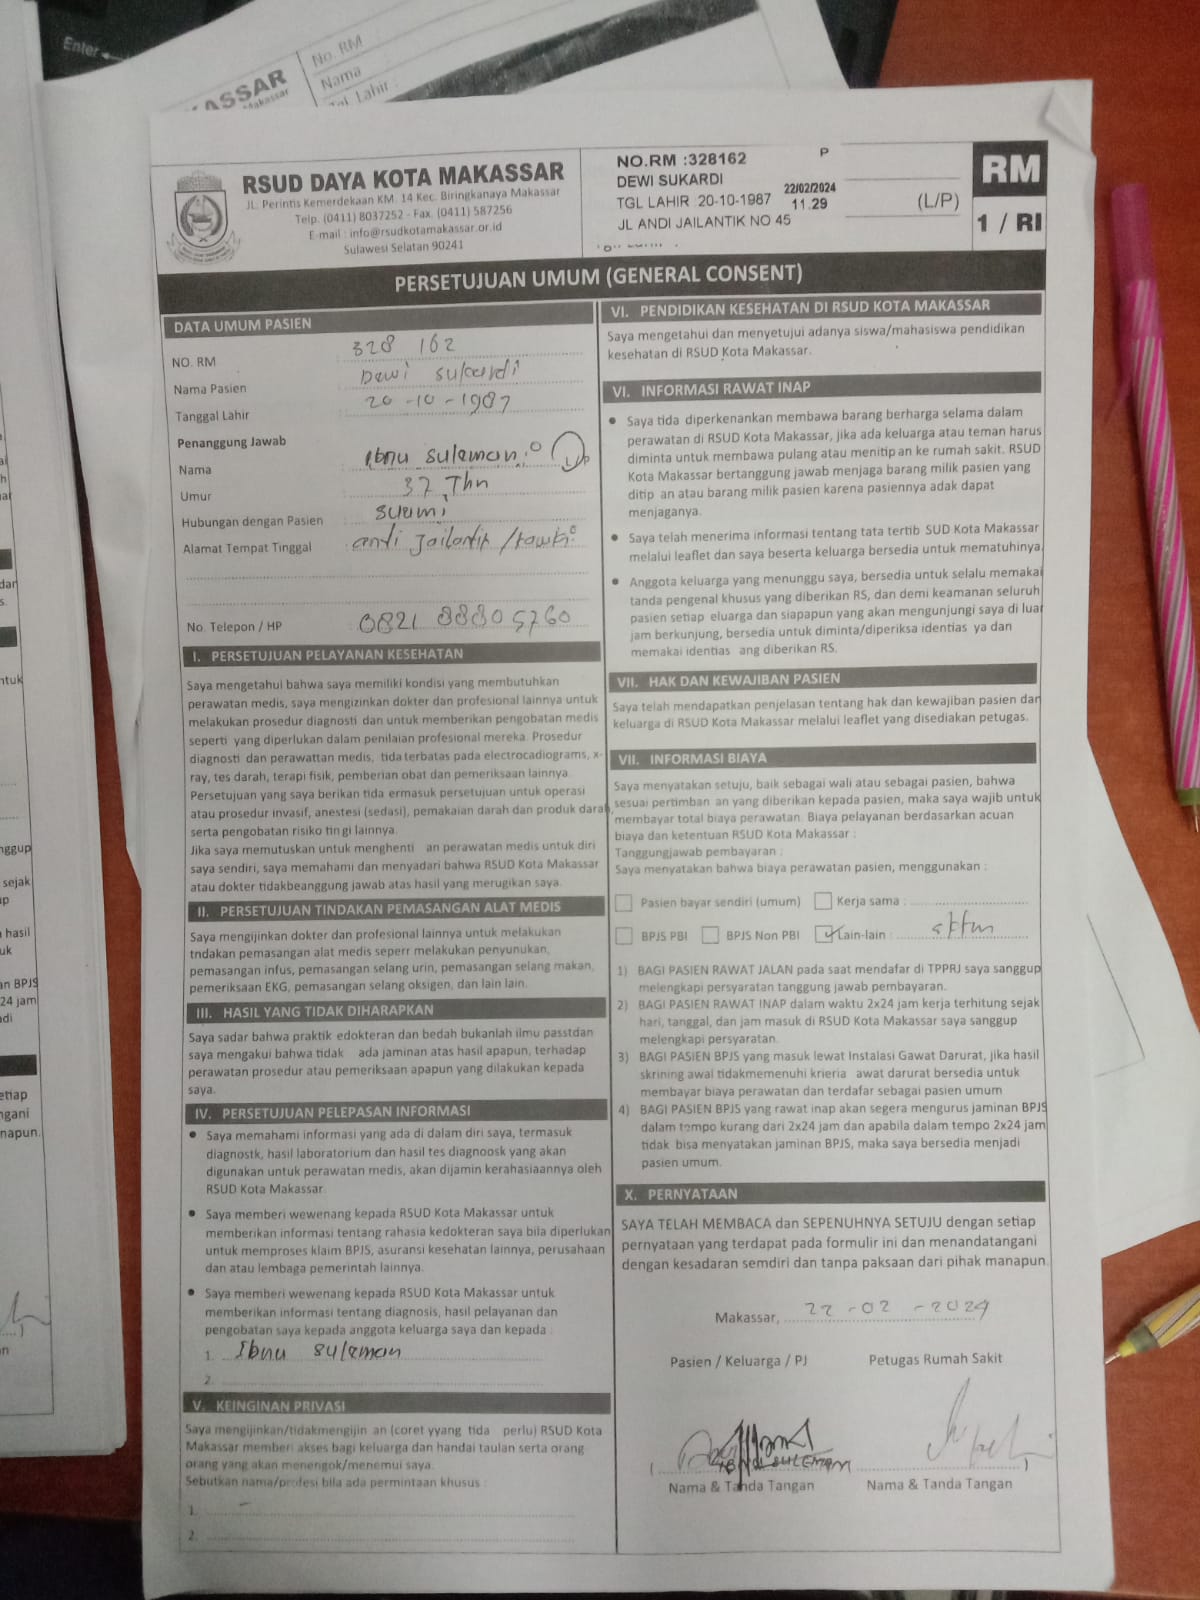 Enter
No. RM
Nama
Tgl. Lahir :
KASSAR
Makassar
RSUD DAYA KOTA MAKASSAR
JL. Perintis Kemerdekaan KM. 14 Kec. Biringkanaya Makassar
Telp. (0411) 8037252 - Fax. (0411) 587256
E-mail : info@rsudkotamakassar.or.id
Sulawesi Selatan 90241
NO.RM :328162 P
DEWI SUKARDI
TGL LAHIR 20-10-1987
22/02/2024
11.29
JL ANDI JAILANTIK NO 45
(L/P)
RM
1 / RI
PERSETUJUAN UMUM (GENERAL CONSENT)
DATA UMUM PASIEN
NO. RM : 328 162
Nama Pasien : Dewi sukardi
Tanggal Lahir : 20-10-1987
Penanggung Jawab
Nama : Ibnu suleman
Umur : 37 Thn
Hubungan dengan Pasien : suami
Alamat Tempat Tinggal : andi Jailantik
No. Telepon / HP : 0821 88805760
I. PERSETUJUAN PELAYANAN KESEHATAN
Saya mengetahui bahwa saya memiliki kondisi yang membutuhkan
perawatan medis, saya mengizinkan dokter dan profesional lainnya untuk
melakukan prosedur diagnosti dan untuk memberikan pengobatan medis
seperti yang diperlukan dalam penilaian profesional mereka. Prosedur
diagnosti dan perawattan medis, tida terbatas pada electrocadiograms, x-
ray, tes darah, terapi fisik, pemberian obat dan pemeriksaan lainnya.
Persetujuan yang saya berikan tida ermasuk persetujuan untuk operasi
atau prosedur invasif, anestesi (sedasi), pemakaian darah dan produk darah,
serta pengobatan risiko tin gi lainnya.
Jika saya memutuskan untuk menghenti an perawatan medis untuk diri
saya sendiri, saya memahami dan menyadari bahwa RSUD Kota Makassar
atau dokter tidakbeanggung jawab atas hasil yang merugikan saya.
II. PERSETUJUAN TINDAKAN PEMASANGAN ALAT MEDIS
Saya mengijinkan dokter dan profesional lainnya untuk melakukan
tndakan pemasangan alat medis seperr melakukan penyunukan,
pemasangan infus, pemasangan selang urin, pemasangan selang makan,
pemeriksaan EKG, pemasangan selang oksigen, dan lain lain.
III. HASIL YANG TIDAK DIHARAPKAN
Saya sadar bahwa praktik edokteran dan bedah bukanlah ilmu passtdan
saya mengakui bahwa tidak ada jaminan atas hasil apapun, terhadap
perawatan prosedur atau pemeriksaan apapun yang dilakukan kepada
saya.
IV. PERSETUJUAN PELEPASAN INFORMASI
• Saya memahami informasi yang ada di dalam diri saya, termasuk
diagnostk, hasil laboratorium dan hasil tes diagnoosk yang akan
digunakan untuk perawatan medis, akan dijamin kerahasiaannya oleh
RSUD Kota Makassar.
• Saya memberi wewenang kepada RSUD Kota Makassar untuk
memberikan informasi tentang rahasia kedokteran saya bila diperlukan
untuk memproses klaim BPJS, asuransi kesehatan lainnya, perusahaan
dan atau lembaga pemerintah lainnya.
• Saya memberi wewenang kepada RSUD Kota Makassar untuk
memberikan informasi tentang diagnosis, hasil pelayanan dan
pengobatan saya kepada anggota keluarga saya dan kepada :
1. Ibnu suleman
2.
V. KEINGINAN PRIVASI
Saya mengijinkan/tidakmengijin an (coret yyang tida perlu) RSUD Kota
Makassar memberi akses bagi keluarga dan handai taulan serta orang
orang yang akan menengok/menemui saya.
Sebutkan nama/profesi bila ada permintaan khusus :
1.
2.
VI. PENDIDIKAN KESEHATAN DI RSUD KOTA MAKASSAR
Saya mengetahui dan menyetujui adanya siswa/mahasiswa pendidikan
kesehatan di RSUD Kota Makassar.
VI. INFORMASI RAWAT INAP
• Saya tida diperkenankan membawa barang berharga selama dalam
perawatan di RSUD Kota Makassar, jika ada keluarga atau teman harus
diminta untuk membawa pulang atau menitip an ke rumah sakit. RSUD
Kota Makassar bertanggung jawab menjaga barang milik pasien yang
ditip an atau barang milik pasien karena pasiennya adak dapat
menjaganya.
• Saya telah menerima informasi tentang tata tertib SUD Kota Makassar
melalui leaflet dan saya beserta keluarga bersedia untuk mematuhinya
• Anggota keluarga yang menunggu saya, bersedia untuk selalu memakai
tanda pengenal khusus yang diberikan RS, dan demi keamanan seluruh
pasien setiap eluarga dan siapapun yang akan mengunjungi saya di luar
jam berkunjung, bersedia untuk diminta/diperiksa identias ya dan
memakai identias ang diberikan RS.
VII. HAK DAN KEWAJIBAN PASIEN
Saya telah mendapatkan penjelasan tentang hak dan kewajiban pasien dan
keluarga di RSUD Kota Makassar melalui leaflet yang disediakan petugas.
VII. INFORMASI BIAYA
Saya menyatakan setuju, baik sebagai wali atau sebagai pasien, bahwa
sesuai pertimban an yang diberikan kepada pasien, maka saya wajib untuk
membayar total biaya perawatan. Biaya pelayanan berdasarkan acuan
biaya dan ketentuan RSUD Kota Makassar :
Tanggungjawab pembayaran :
Saya menyatakan bahwa biaya perawatan pasien, menggunakan :
Pasien bayar sendiri (umum) Kerja sama :
BPJS PBI BPJS Non PBI Lain-lain :
1) BAGI PASIEN RAWAT JALAN pada saat mendafar di TPPRJ saya sanggup
melengkapi persyaratan tanggung jawab pembayaran.
2) BAGI PASIEN RAWAT INAP dalam waktu 2x24 jam kerja terhitung sejak
hari, tanggal, dan jam masuk di RSUD Kota Makassar saya sanggup
melengkapi persyaratan.
3) BAGI PASIEN BPJS yang masuk lewat Instalasi Gawat Darurat, jika hasil
skrining awal tidakmemenuhi krieria awat darurat bersedia untuk
membayar biaya perawatan dan terdafar sebagai pasien umum
4) BAGI PASIEN BPJS yang rawat inap akan segera mengurus jaminan BPJS
dalam tempo kurang dari 2x24 jam dan apabila dalam tempo 2x24 jam
tidak bisa menyatakan jaminan BPJS, maka saya bersedia menjadi
pasien umum.
X. PERNYATAAN
SAYA TELAH MEMBACA dan SEPENUHNYA SETUJU dengan setiap
pernyataan yang terdapat pada formulir ini dan menandatangani
dengan kesadaran semdiri dan tanpa paksaan dari pihak manapun.
Makassar, 22-02-2024
Pasien / Keluarga / PJ Petugas Rumah Sakit
IBNU SULEMAN
Nama & Tanda Tangan Nama & Tanda Tangan